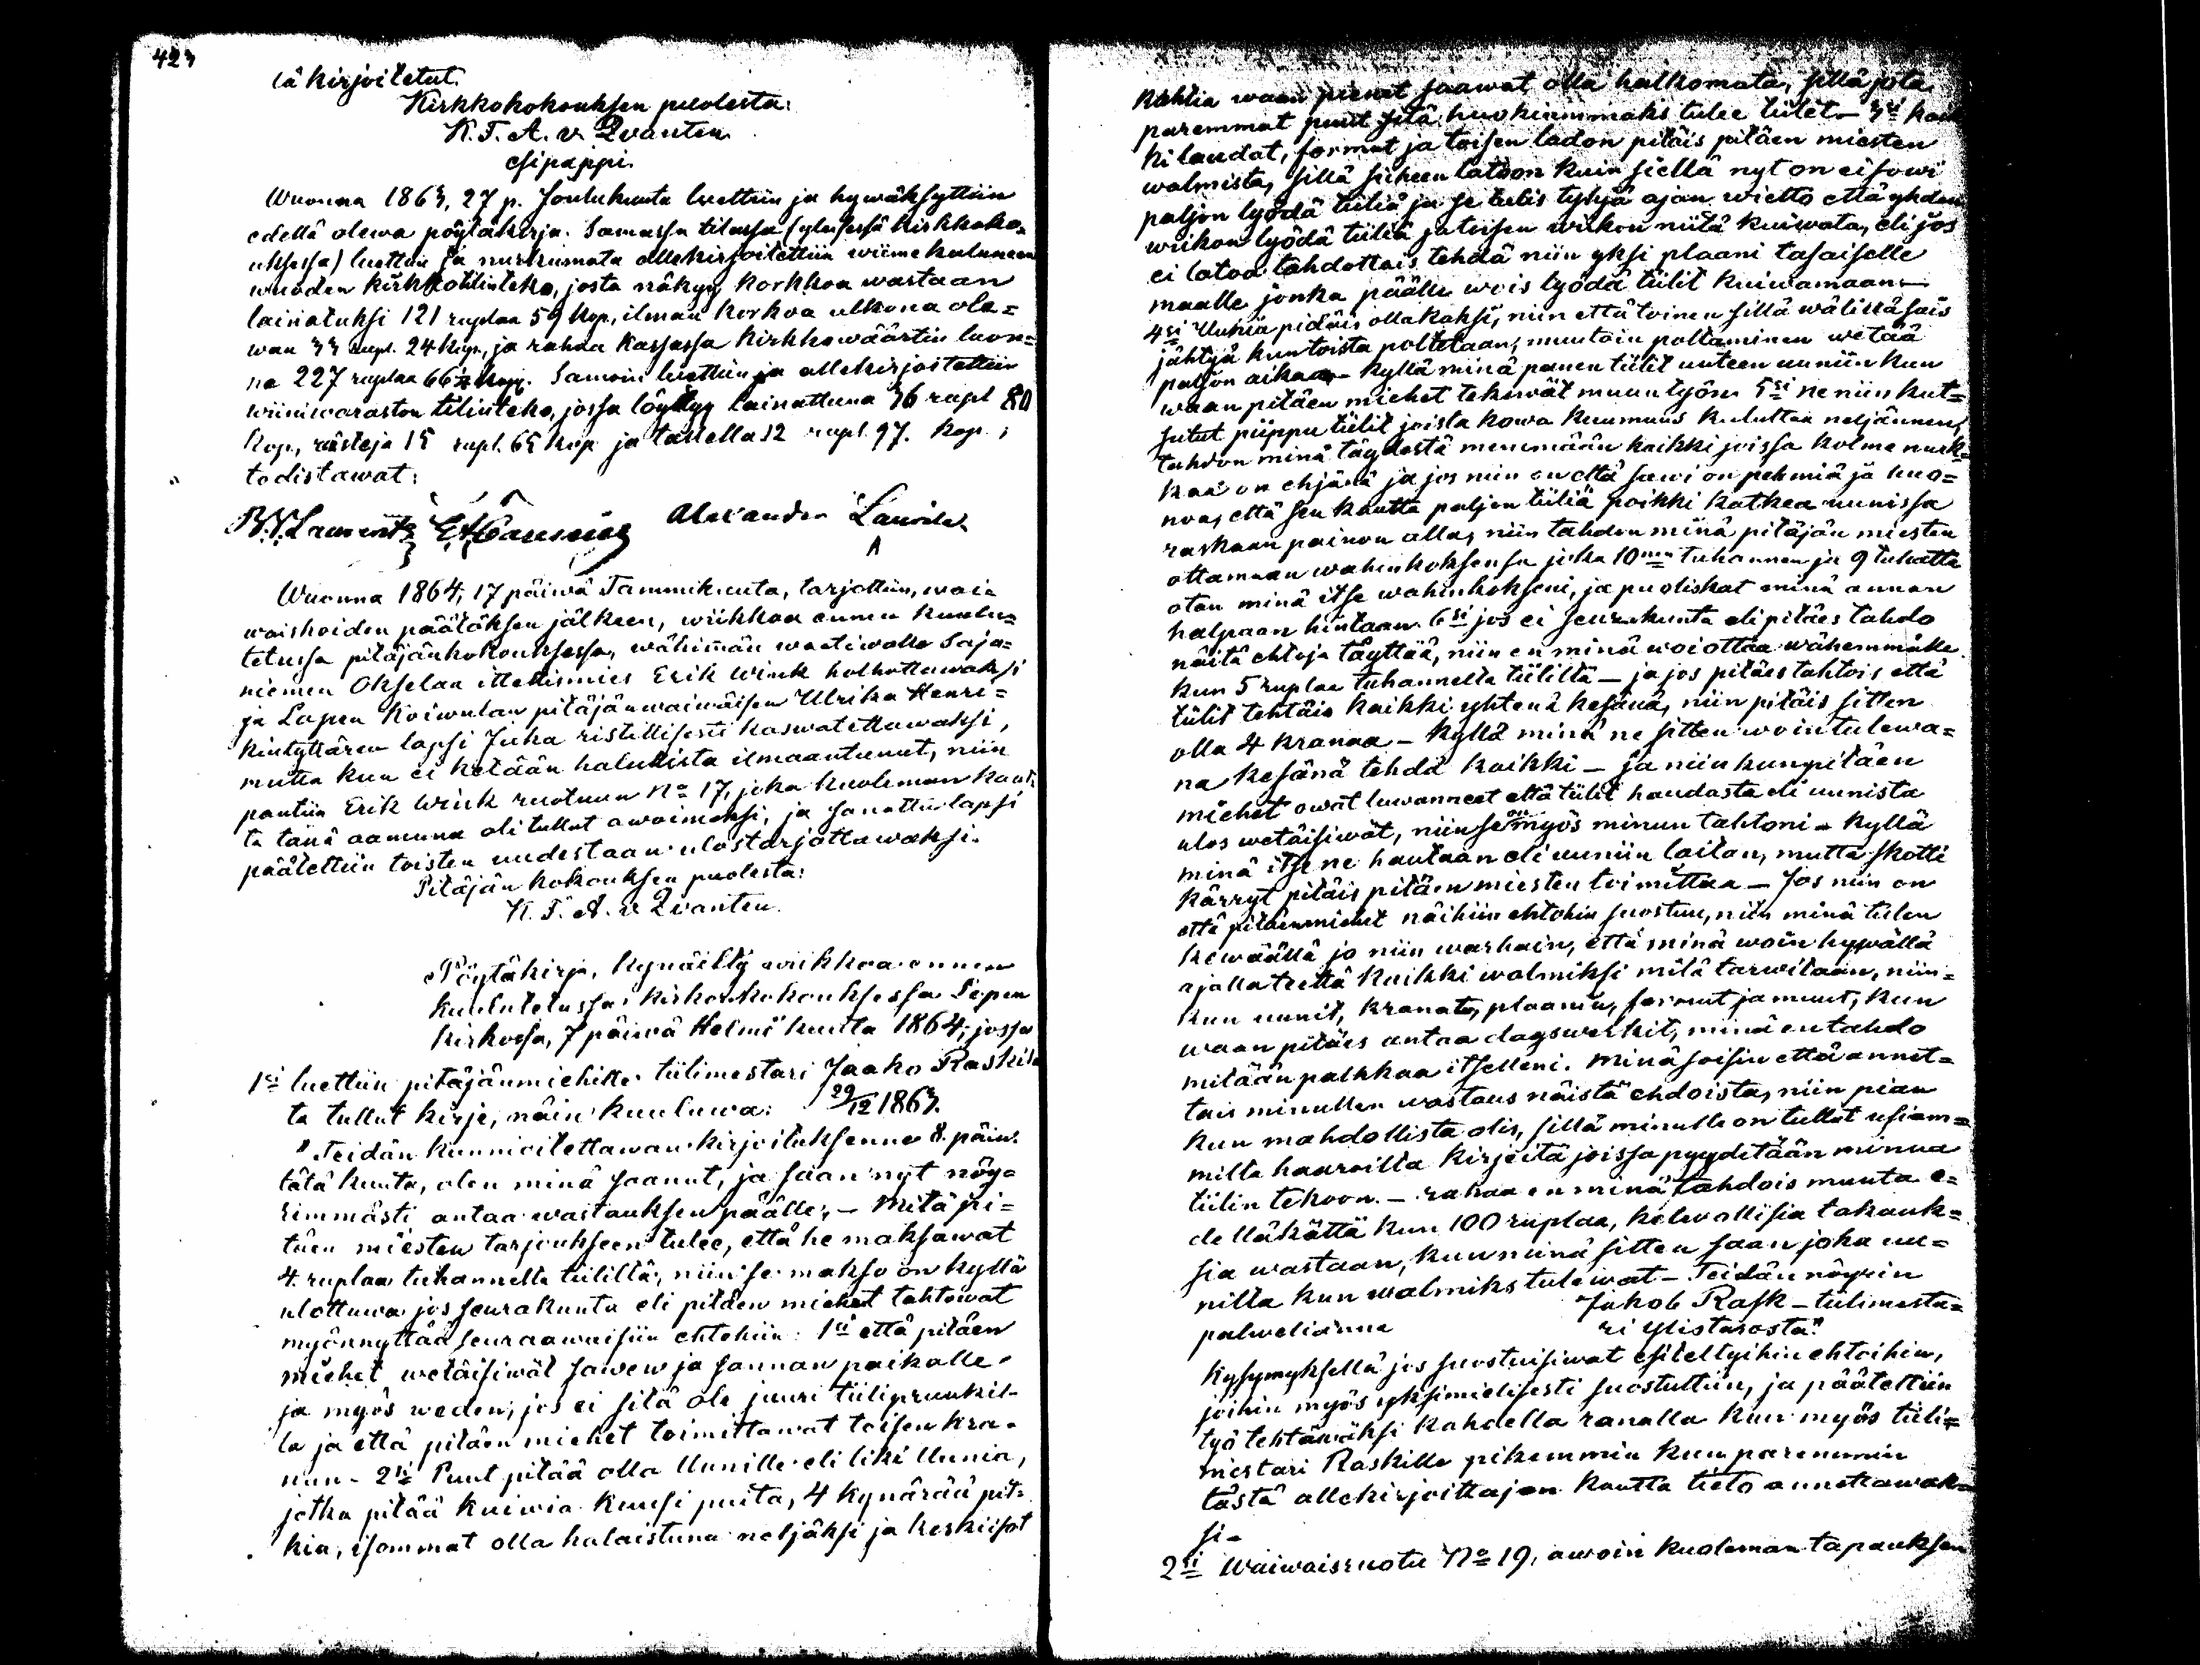 423
lä kirjoitetut.
Kirkkokokouksen puolesta:
K. F. A. v. Qvanten
esipappi.
Wuonna 1863, 27 p. Joulukuuta luettiin ja hywäksyttiin
edellä olewa pöytäkirja. Samassa tilassa (yleisessä kirkkoko-
uksessa) luettiin ja nurkumata allekirjoitettiin wiime kuluneen
wuoden kirkkotilinteko, josta näkyy korkkoa wastaan
lainatuksi 121 ruplaa 59 kop., ilman korkoa ulkona ole=
wan 33 rupl. 24 kop., ja rahaa kassassa kirkkowäärtin luon=
na 227 ruplaa 66 kop. Samoin luettiin ja allekirjoitettiin
wiiniwaraston tilinteko, jossa löytyy lainattuna 36 rupl 80
kop., rästejä 15 rupl. 65 kop ja tallella 12 rupl. 97. kop.;
todistawat:
Alexander Laurila
Wuonna 1864, 17 päiwä Tammikuuta, tarjottiin, wai-
waishoidon päätöksen jälkeen, wiikkoa ennen kuulu=
tetussa pitäjänkokouksessa, wähimmän waatiwalle Saja=
niemen Okselan ittellismies Erik Wink holhottawaksi
ja Lopen Koiwulan pitäjänwaiwaisen Ulrika Henri=
kintyttären lapsi Juha ristillisesti kaswatettawaksi,
mutta kun ei ketään halullista ilmaantunut, niin
pantiin Erik Wink ruotuun No 17, joka kuoleman kaut-
ta tänä aamuna oli tullut awoimeksi, ja sanottu lapsi
päätettiin toisten uudestaan ulostarjottawaksi.
Pitäjän kokouksen puolesta:
K. F. A. v. Qvanten.
Pöytäkirja, kynäilty wiikkoa ennen
kuulutetussa kirkonkokouksessa Lopen
kirkossa, 7 päiwä Helmikuuta 1864; jossa
1si luettiin pitäjänmiehille tiilimestari Jaako Raskil-
ta tullut kirje, näin kuuluwa: 29/12 1863.
"Teidän kunnioitettawan kirjoituksenne 8. päiw.
tätä kuuta, olen minä saanut, ja saan nyt nöy=
rimmästi antaa wastauksen päälle; - Mitä pi=
täen miesten tarjoukseen tulee, että he maksawat
4 ruplaa tuhannelta tiililtä, niin se makso on kyllä
ulottuwa jos seurakunta eli pitäen miehet tahtowat
myönnyttää seuraawaisiin ehtohin: 1si että pitäen
miehet wetäisiwät sawen ja sannan paikalle
ja myös weden; jos ei sitä ole juuri tiilipruukil-
la ja että pitäen miehet toimittawat toisen kra-
nun - 2si Puut pitää olla Uunille eli liki Uunia,
jotka pitää kuiwia kuusi puita, 4 kynärää pit=
kiä, isommat olla halaistuna neljäksi ja keskiisot
kahtia waan pienet saawat olla halkomata, sillä jota
paremmat puut sitä huokiammaks tulee tiilet - 3si kaik-
ki laudat, formut ja toisen ladon pitäis pitäen miesten
walmista, sillä siiheen latoon kuin siellä nyt on ei sowi
paljon lyödä tiiliä ja se tulis tyhjä ajan wietto että yhden
wiikon lyödä tiiliä ja toisen wiikon niitä kuiwata, eli jos
ei latoa tahdottais tehdä niin yksi plaani tasaiselle
maalle jonka päälle wois lyödä tiilit kuiwamaan -
4si Uunia pidäis olla kaksi, niin että toinen sillä wälillä sais
jähtyä kun toista poltetaan, muutoin polttaminen wetää
paljon aikaa - kyllä minä panen tiilit uuteen uuniin kun
waan pitäen miehet tekewät muun työn. 5si ne niin kut=
sutut piippu tiilit joista kowa kuumuus kuluttaa neljännen,
tahdon minä täydestä menemään kaikki joissa kolme nurk-
kaa on ehjänä ja jos niin on että sawi on pehmiä ja huo=
noa, että sen kautta paljon tiiliä poikki katkea uunissa
raskaan painon alla, niin tahdon minä pitäjän miesten
ottamaan wahinkoksensa joka 10nen tuhannen ja 9 tuhatta
otan minä itse wahinkokseni, ja puoliskat minä annan
halpaan hintaan. 6si jos ei seurakunta eli pitäes tahdo
näitä ehtoja täyttää, niin en minä woi ottaa wähemmälle
kun 5 ruplaa tuhannelta tiililtä - ja jos pitäes tahtois että
tiilit tehtäis kaikki yhtenä kesänä, niin pitäis sitten
olla 4 kranaa - kyllä minä ne sitten woin tulewa=
na kesänä tehdä kaikki - ja niin kun pitäen
miehet owat luwanneet että tiilit haudasta eli uunista
ulos wetäisiwät, niin se on myös minun tahtoni - kyllä
minä itse ne hautaan eli uuniin laitan, mutta skotti
kärryt pitäis pitäen miesten toimittaa - Jos niin on
että pitäenmiehet näihiin ehtohin suostuu, niin minä tulen
kewäällä jo niin warhain, että minä woin hywällä
ajalla teettä kaikki walmiksi mitä tarwitaan, niin=
kun uunit, kranat, plaania, formut ja muut, kun
waan pitäes antaa dagswerkit, minä en tahdo
mitään palkkaa itselleni. Minä soisin että annet=
tais minullen wastaus näistä ehdoista, niin pian
kun mahdollista olis, sillä minulle on tullut usiam=
milta haaroilta kirjeitä joissa pyydetään minua
tiilin tekoon. - rahaa en minä tahdois muuta e=
dellä kättä kun 100 ruplaa, kelwollisia takauk=
sia wastaan, kun minä sitten saan joka uu=
nilta kun walmiks tulewat - Teidän nöyrin
palwelianne Jakob Rask - tiilimesta=
ri Ylistarosta."
Kysymyksellä jos suostuisiwat esiteltyihin ehtoihin,
joihin myös yksimielisesti suostuttiin, ja päätettiin
työ tehtäwäksi kahdella ranalla kun myös tiili=
mestari Raskille pikemmin kun paremmin
tästä allekirjoittajan kautta tieto annettawak=
si -
2si Waiwaisruotu No 19, awoin kuoleman tapauksen